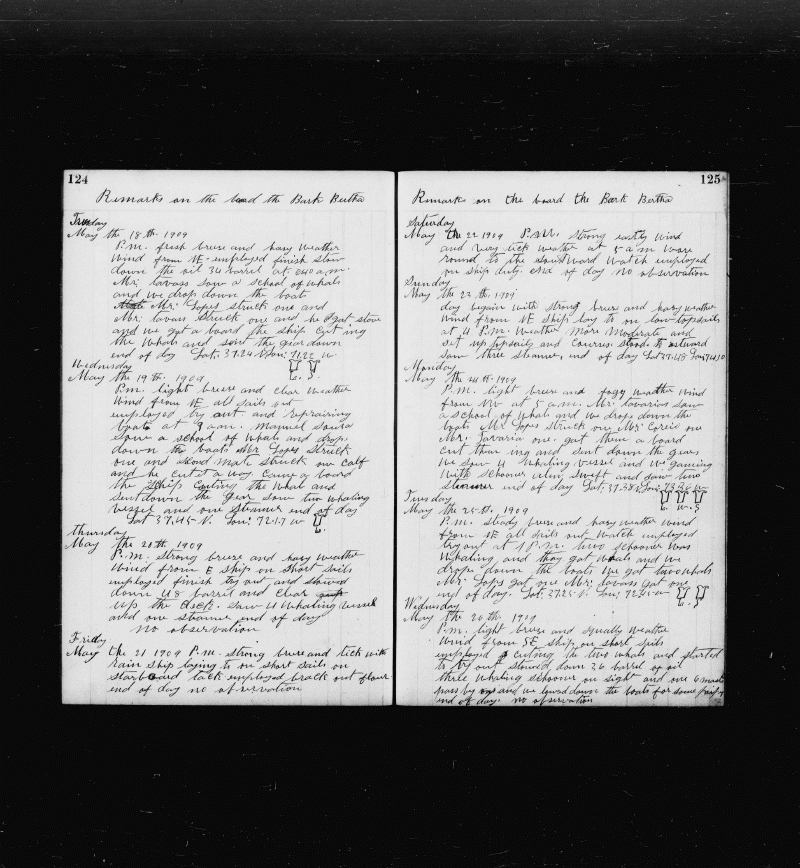 124
Remarks on the boad the Bark Bertha
Tuesday
May the 18th. 1909
P.m. fresh breze and hasy weather
Wind from NE employed finish stow
down the oil 34 barrel at
Mr. lavass saw a school of whals
and we drop down the boat
Mr. Lopes struck one and
Mr. lavass struck one and he got stove
and we got a board the ship cut ing
the whals and sent the gear down
end of day Lat. 37.24 N Lon. 71.22 w
Wednesday
May the 19th. 1909
P.m. light breze and clear weather
Wind from NE all sails out
employed by and repairing
boat at 9 a.m. Manuel Souza
saw a school of whals and drop
down the boats Mr Lopes struck
one and second mate struck one calf
and he cut et a way came a board
the ship cuting the whal and
sent down the gear saw two whaling
vessel and one steamer end of day
Lat 37.45 N. Lon. 72.17 w
thursday
May the 20th. 1909
P.m. strong breze and hasy weather
Wind from E ship on short sails
employed finish try out and stowed
down 48 barrel and clear
up the deck. saw 4 whaling vessel
and one steamer end of day
No observation
Friday
May the 21 1909 P.m. strong breze and tick with
rain ship laying to on short sails on
starboard tack employed brack out flour
end of day no observation
125
Remarks on the board the Bark Bertha
Saturday
May the 22 1909 P.M. strong eastly wind
and very tick weather at 5 a.m. wore
round to the southward Watch employed
on ship duty. end of day no observation
Sunday
May the 23 th. 1909
day begain with strong breze and hasy weather
Wind from NE ship lay to on low topsails
at 4 P.M. Weather More Moderate and
set up topsails and courses stood to estward
saw three steamer end of day Lat 37.48 Lon 74.10
Monday
May the 24th. 1909
P.M. light breze and fogy weather wind
from NW at 5 a.m. Mr. lavarios saw
a school of whals and we drop down the
boats Mr Lopes struck one Mr. Corvio one
Mr. Javaria one. got them a board
cut them ing and sent down the gears
We saw 4 whaling vessel and we gaming
With schooner and saw two
steamer end of day Lat. 37.38 N Lon. 73.36 w
Tuesday
May the 25th. 1909
P.M. stedy breze and hasy weather wind
from NE all sails out Watch employed
try out at 1 P.M. two schooner was
whaling and thay got whals and we
drope down the boats We got two whals
Mr. Lopes got one Mr. lavass got one
end of day. Lat. 37.25 N. Lon. w
Wednesday
May the 26 th. 1909
P.m. light breze and squally weather
Wind from SE ship on short sails
employed cuting the two whals and started
to try out stowed down 36 barrel of oil
three whaling schooner on sight and one 6 mast
pass by and we lowed down the boats for some
end of day. no observation